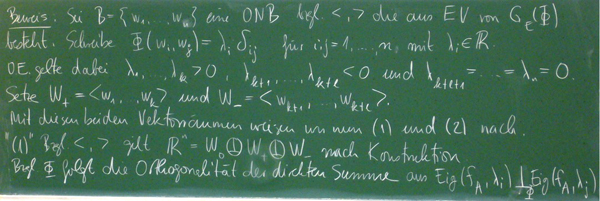 Beweis. Sei B = {w₁, ..., wₙ} eine ONB bzgl. < , > die aus EV von G_e(Φ)
besteht. Schreibe Φ(wᵢ, wⱼ) = λᵢ δᵢⱼ für i,j = 1, ..., n, mit λᵢ ∈ ℝ.
OE. gelte dabei λ₁, ..., λₖ > 0, λₖ₊₁, ..., λₖ₊ₗ < 0 und λₖ₊ₗ₊₁ = ... = λₙ = 0.
Setze W₊ = <w₁, ..., wₖ> und W₋ = <wₖ₊₁, ..., wₖ₊ₗ>.
Mit diesen beiden Vektorräumen weisen wir nun (1) und (2) nach.
"(1)" Bzgl < , > gilt ℝⁿ = W₀ ⊕ W₊ ⊕ W₋ nach Konstruktion
Bzgl Φ folgt die Orthogonalität der direkten Summe aus Eig(f_A, λᵢ) ⊥_Φ Eig(f_A, λⱼ)